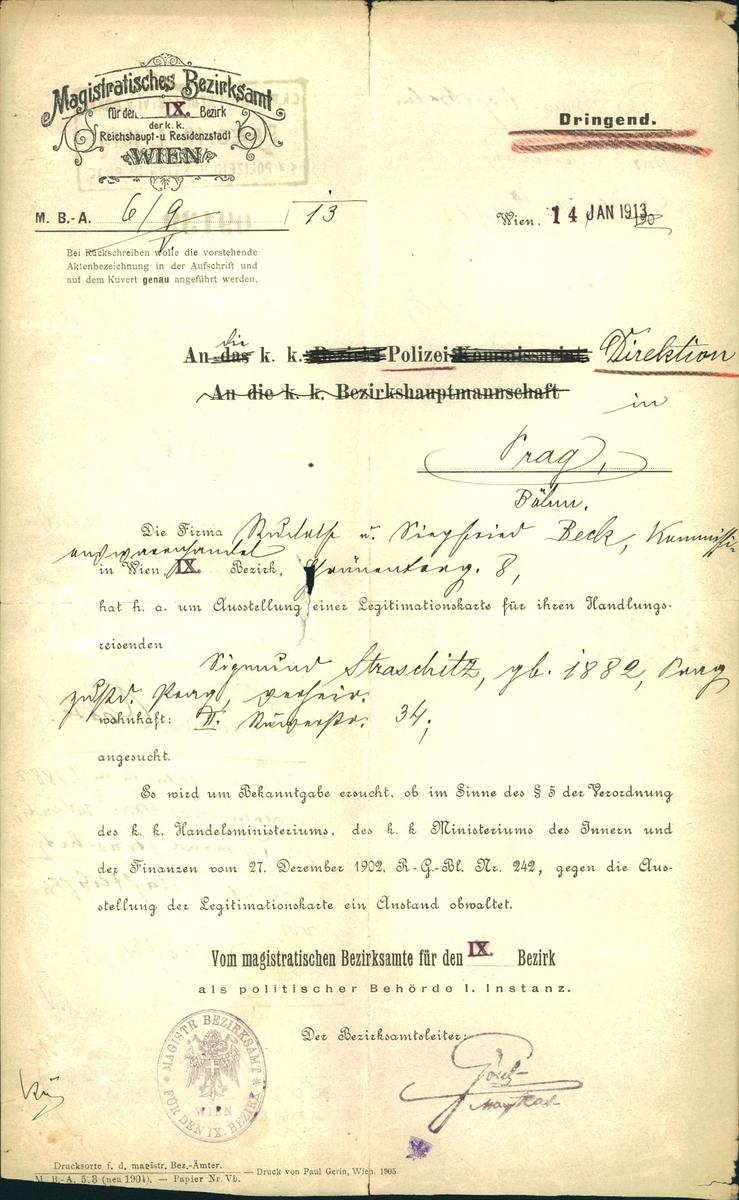 Magistratisches Bezirksamt
für den IX. Bezirk
der k. k.
Reichshaupt- u Residenzstadt
WIEN
Dringend.
M. B.-A. 6/9 / 13
V.
Wien, 14 JAN 1913 190
Bei Rückschreiben wolle die vorstehende
Aktenbezeichnung in der Aufschrift und
auf dem Kuvert genau angeführt werden.
die
An das k. k. Bezirks Polizei Kommissariat Direktion
An die k. k. Bezirkshauptmannschaft
in
Prag,
Böhm.
Die Firma Rudolf u. Siegfried Beck, Kommissi-
onswarenhandel
in Wien, IX. Bezirk, Grünentorg. 8,
hat h. a. um Ausstellung einer Legitimationskarte für ihren Handlungs-
reisenden
Sigmund Straschitz, gb. 1882, Prag
zustd. Prag, verheir.
wohnhaft: II. 34;
angesucht.
Es wird um Bekanntgabe ersucht, ob im Sinne des § 5 der Verordnung
des k. k. Handelsministeriums, des k. k Ministeriums des Innern und
der Finanzen vom 27. Dezember 1902, R-G.-Bl. Nr. 242, gegen die Aus-
stellung der Legitimationskarte ein Anstand obwaltet.
Vom magistratischen Bezirksamte für den IX. Bezirk
als politischer Behörde I. Instanz.
Der Bezirksamtsleiter:
MAGISTR BEZIRKSAMT
WIEN
FÜR DEN IX. BEZIRK
Drucksorte f. d. magistr. Bez.-Ämter.
M. B.-A. 523 (neu 1904). — Papier Nr. Vb.
— Druck von Paul Gerin, Wien. 1905